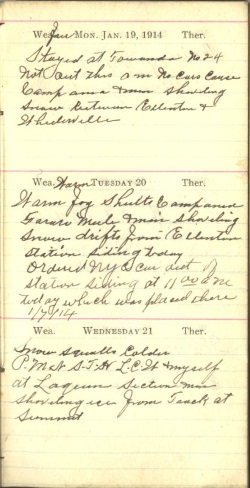 Wea. Fair MON. JAN. 19, 1914 Ther.
Stayed at Towanda No 24
Not out this am No Cars Cause
Campana & men shoveling
snow between Ellenton &
Wheelerville
Wea. Warm TUESDAY 20 Ther.
Warm fog Shults Campana
Mule & men shoveling
snow drifts from Ellenton
station siding today
Ordered NYC car dist of
station siding at 11 00 am
today which was placed there
1/7/14
Wea. WEDNESDAY 21 Ther.
Snow squalls Colder
P. M & N S.T.H L.C.W & myself
at Laquin Section men
shoveling ice from Track at
Summit